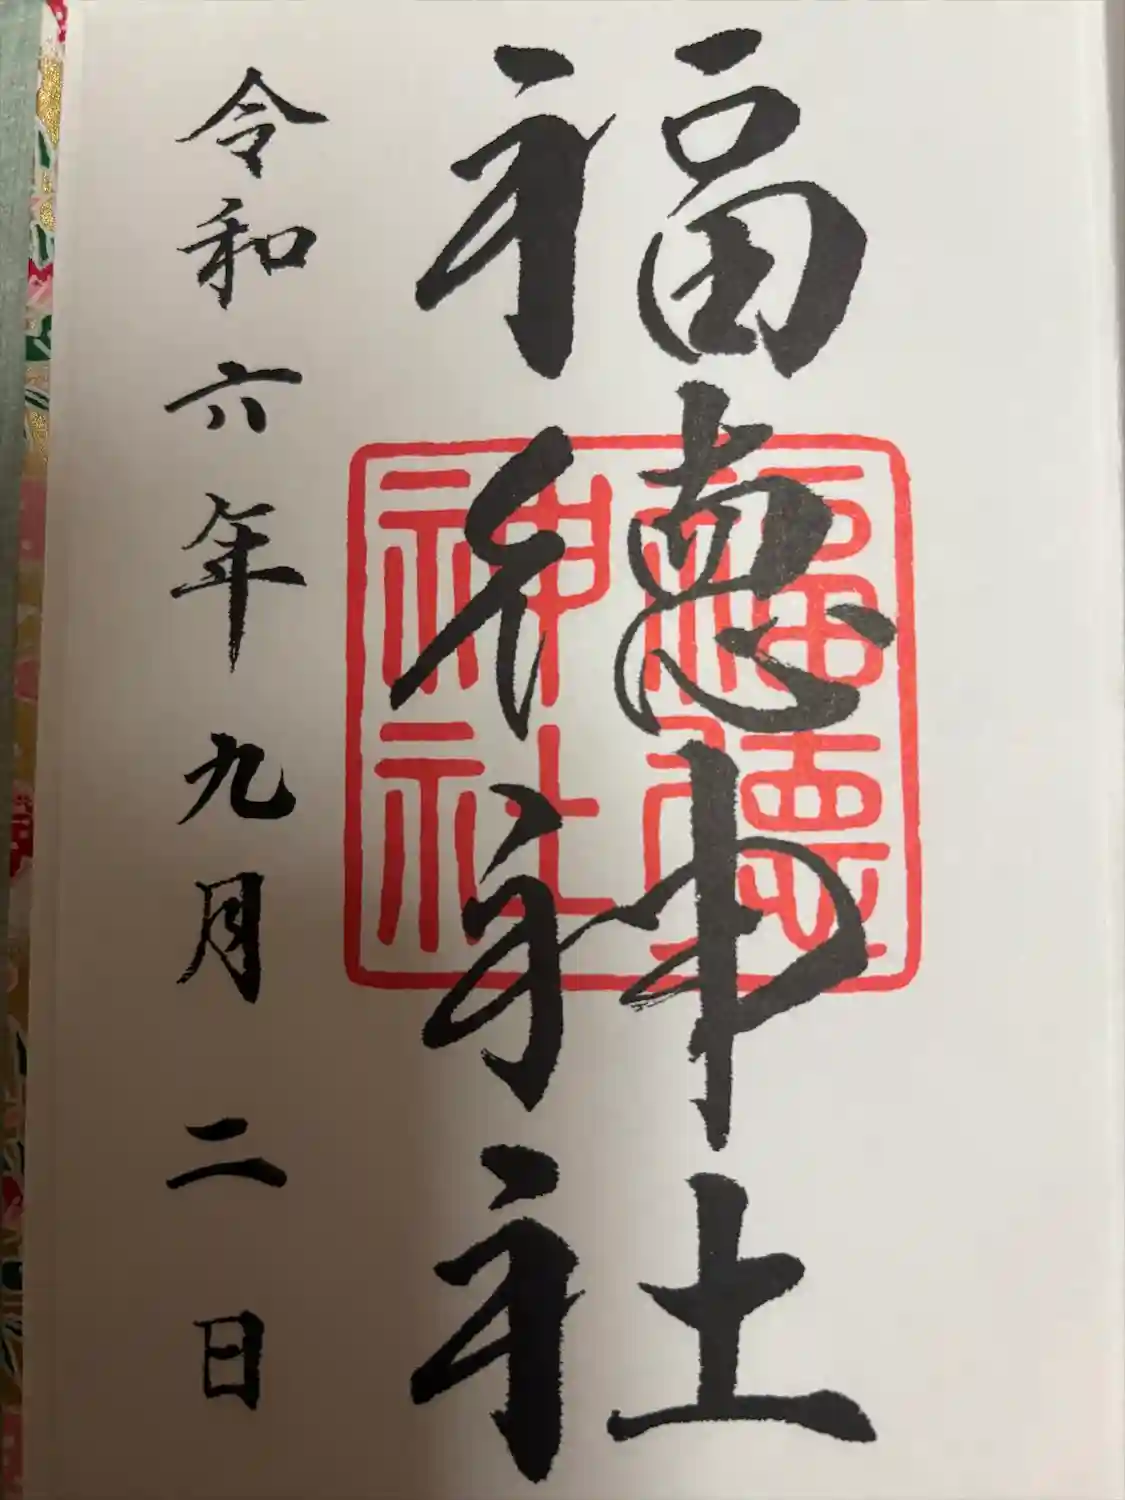 福徳神社
福德
神社
令和六年九月二日